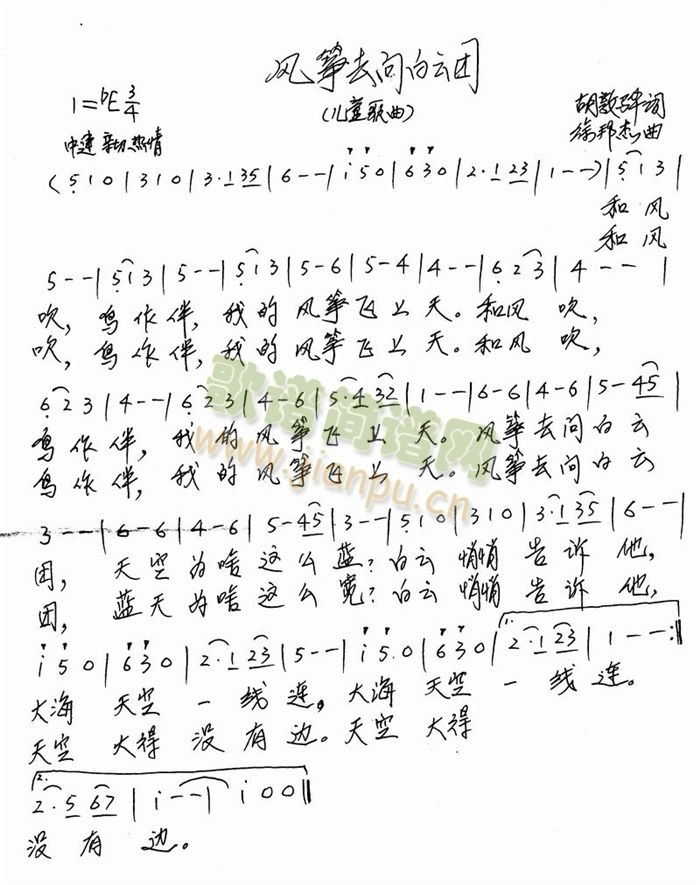 风筝去问白云团
1=♭E 3/4
(儿童歌曲)
词
徐邦杰曲
中速 亲切 热情
(5 1 0|3 1 0|3·1 35|6 - -|i 5 0|6 3 0|2·1 23|1 - -)|5 1 3|
和风
和风
5 - -|5 1 3|5 - -|5 1 3|5 - 6|5 - 4|4 - -|6 2 3|4 - -|
吹，鸟作伴，我的风筝飞上天。和风吹，
吹，鸟作伴，我的风筝飞上天。和风吹，
6 2 3|4 - -|6 2 3|4 - 6|5·4 32|1 - -|6 - 6|4 - 6|5 - 45|
鸟作伴，我的风筝飞上天。风筝去问白云
鸟作伴，我的风筝飞上天。风筝去问白云
歌谱简谱网
www.jianpu.cn
3 - -|6 - 6|4 - 6|5 - 45|3 - -|5 1 0|3 1 0|3·1 35|6 - -|
团，天空为啥这么蓝？白云悄悄告诉他，
团，蓝天为啥这么宽？白云悄悄告诉他，
i 5 0|6 3 0|2·1 23|5 - -|i 5 0|6 3 0|1. 2·1 23|1 - -:‖
大海天空一线连。大海天空一线连。
天空大得没有边。天空大得
2. 2·5 67|i - -|i 0 0‖
没有边。